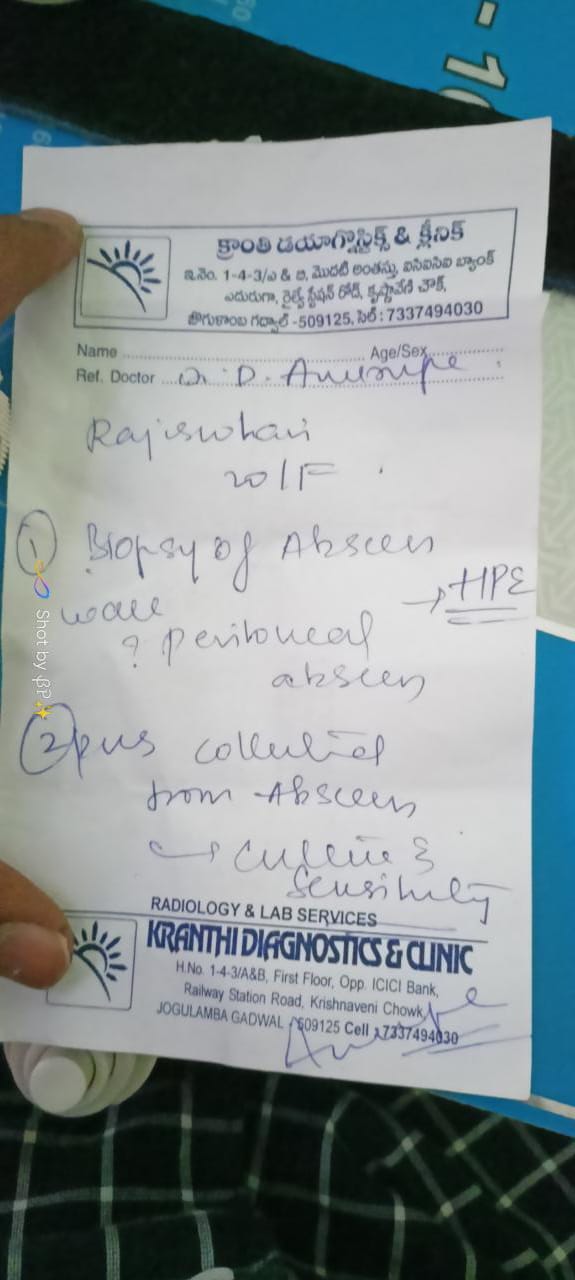 - 10
క్రాంతి డయాగ్నొస్టిక్స్ & క్లీనిక్
ఇ.నెం. 1-4-3/ఎ & బి, మొదటి అంతస్తు, ఐసిఐసిఐ బ్యాంక్
ఎదురుగా, రైల్వే స్టేషన్ రోడ్, కృష్ణవేణి చౌక్,
జోగుళాంబ గద్వాల్ -509125, సెల్ : 7337494030
Name ........ Age/Sex ........
Ref. Doctor .... Dr. D. Anurupe
Rajeswhari
20/F
① Biopsy of Abscess
wall → HPE
? peritoneal
abscess
② pus collected
from Abscess
→ culture &
Sensitivity
RADIOLOGY & LAB SERVICES
KRANTHI DIAGNOSTICS & CLINIC
H.No. 1-4-3/A&B, First Floor, Opp. ICICI Bank,
Railway Station Road, Krishnaveni Chowk,
JOGULAMBA GADWAL - 509125 Cell : 7337494030
Shot by βP✨